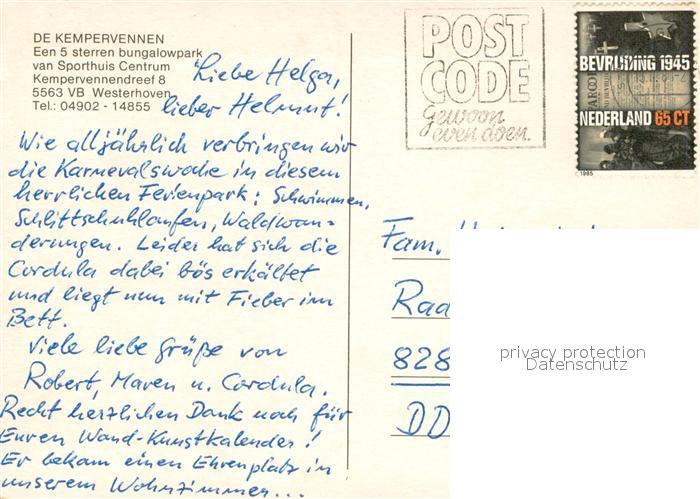 DE KEMPERVENNEN
Een 5 sterren bungalowpark
van Sporthuis Centrum
Kempervennendreef 8
5563 VB Westerhoven
Tel.: 04902 - 14855
Liebe Helga,
lieber Helmut!
Wie alljährlich verbringen wir
die Karnevalswoche in diesem
herrlichen Ferienpark: Schwimmen,
Schlittschuhlaufen, Waldwan-
derungen. Leider hat sich die
Cordula dabei bös erkältet
und liegt nun mit Fieber im
Bett.
Viele liebe Grüße von
Robert, Maren u. Cordula.
Recht herzlichen Dank noch für
Euren Wand-Kunstkalender!
Er bekam einen Ehrenplatz in
unserem Wohnzimmer...
POST
CODE
Gewoon
even doen.
BEVRIJDING 1945
NEDERLAND 65 CT
1985
Fam.
Rad
828
DD
privacy protection
Datenschutz